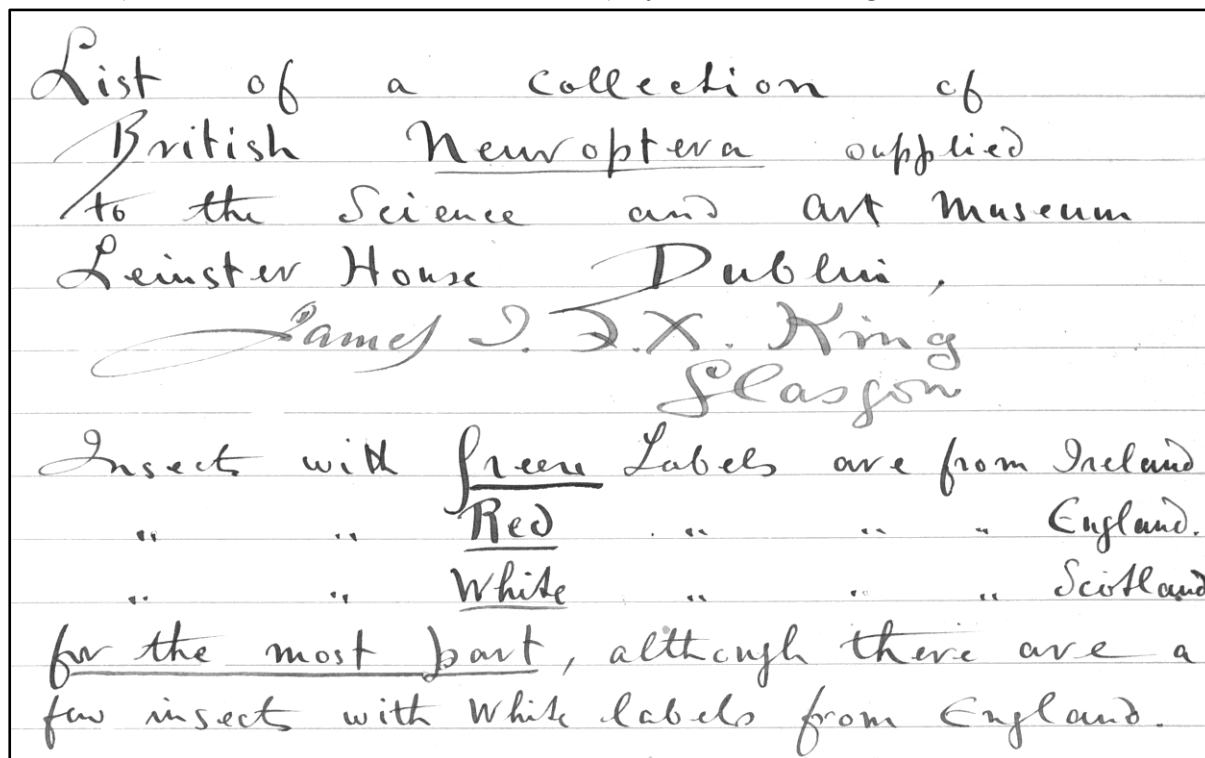 List of a collection of
British Neuroptera supplied
to the Science and Art Museum
Leinster House Dublin,
James J. F. X. King
Glasgow
Insects with Green Labels are from Ireland
" " Red " " " England.
" " White " " " Scotland
for the most part, although there are a
few insects with White labels from England.